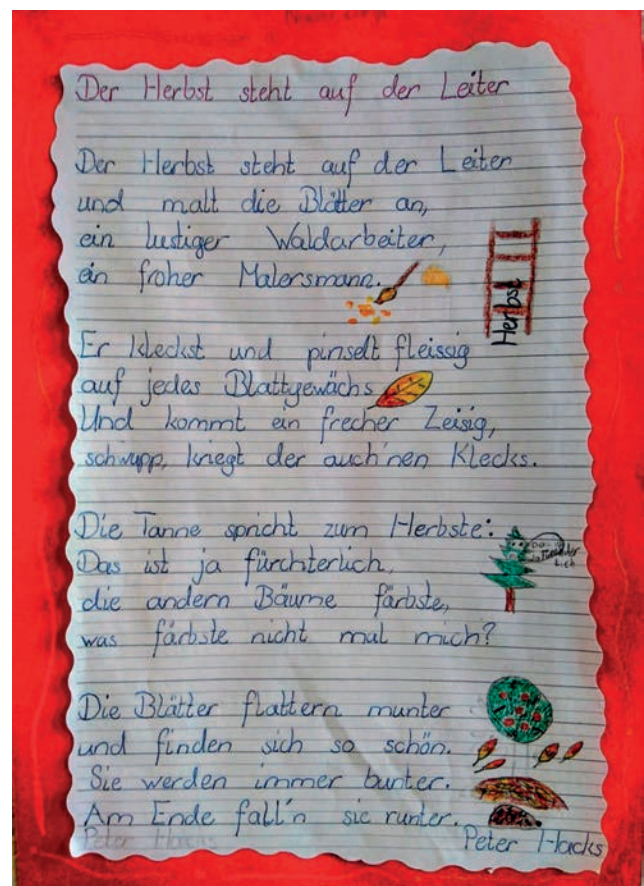 Der Herbst steht auf der Leiter
Der Herbst steht auf der Leiter
und malt die Blätter an,
ein lustiger Waldarbeiter,
ein froher Malersmann.
Herbst
Er kleckst und pinselt fleissig
auf jedes Blattgewächs
Und kommt ein frecher Zeisig,
schwupp, kriegt der auch'nen Klecks.
Die Tanne spricht zum Herbste:
Das ist ja fürchterlich,
die andern Bäume färbste,
was färbste nicht mal mich?
Die Blätter flattern munter
und finden sich so schön.
Sie werden immer bunter.
Am Ende fall'n sie runter.
Peter Hacks
Peter Hacks